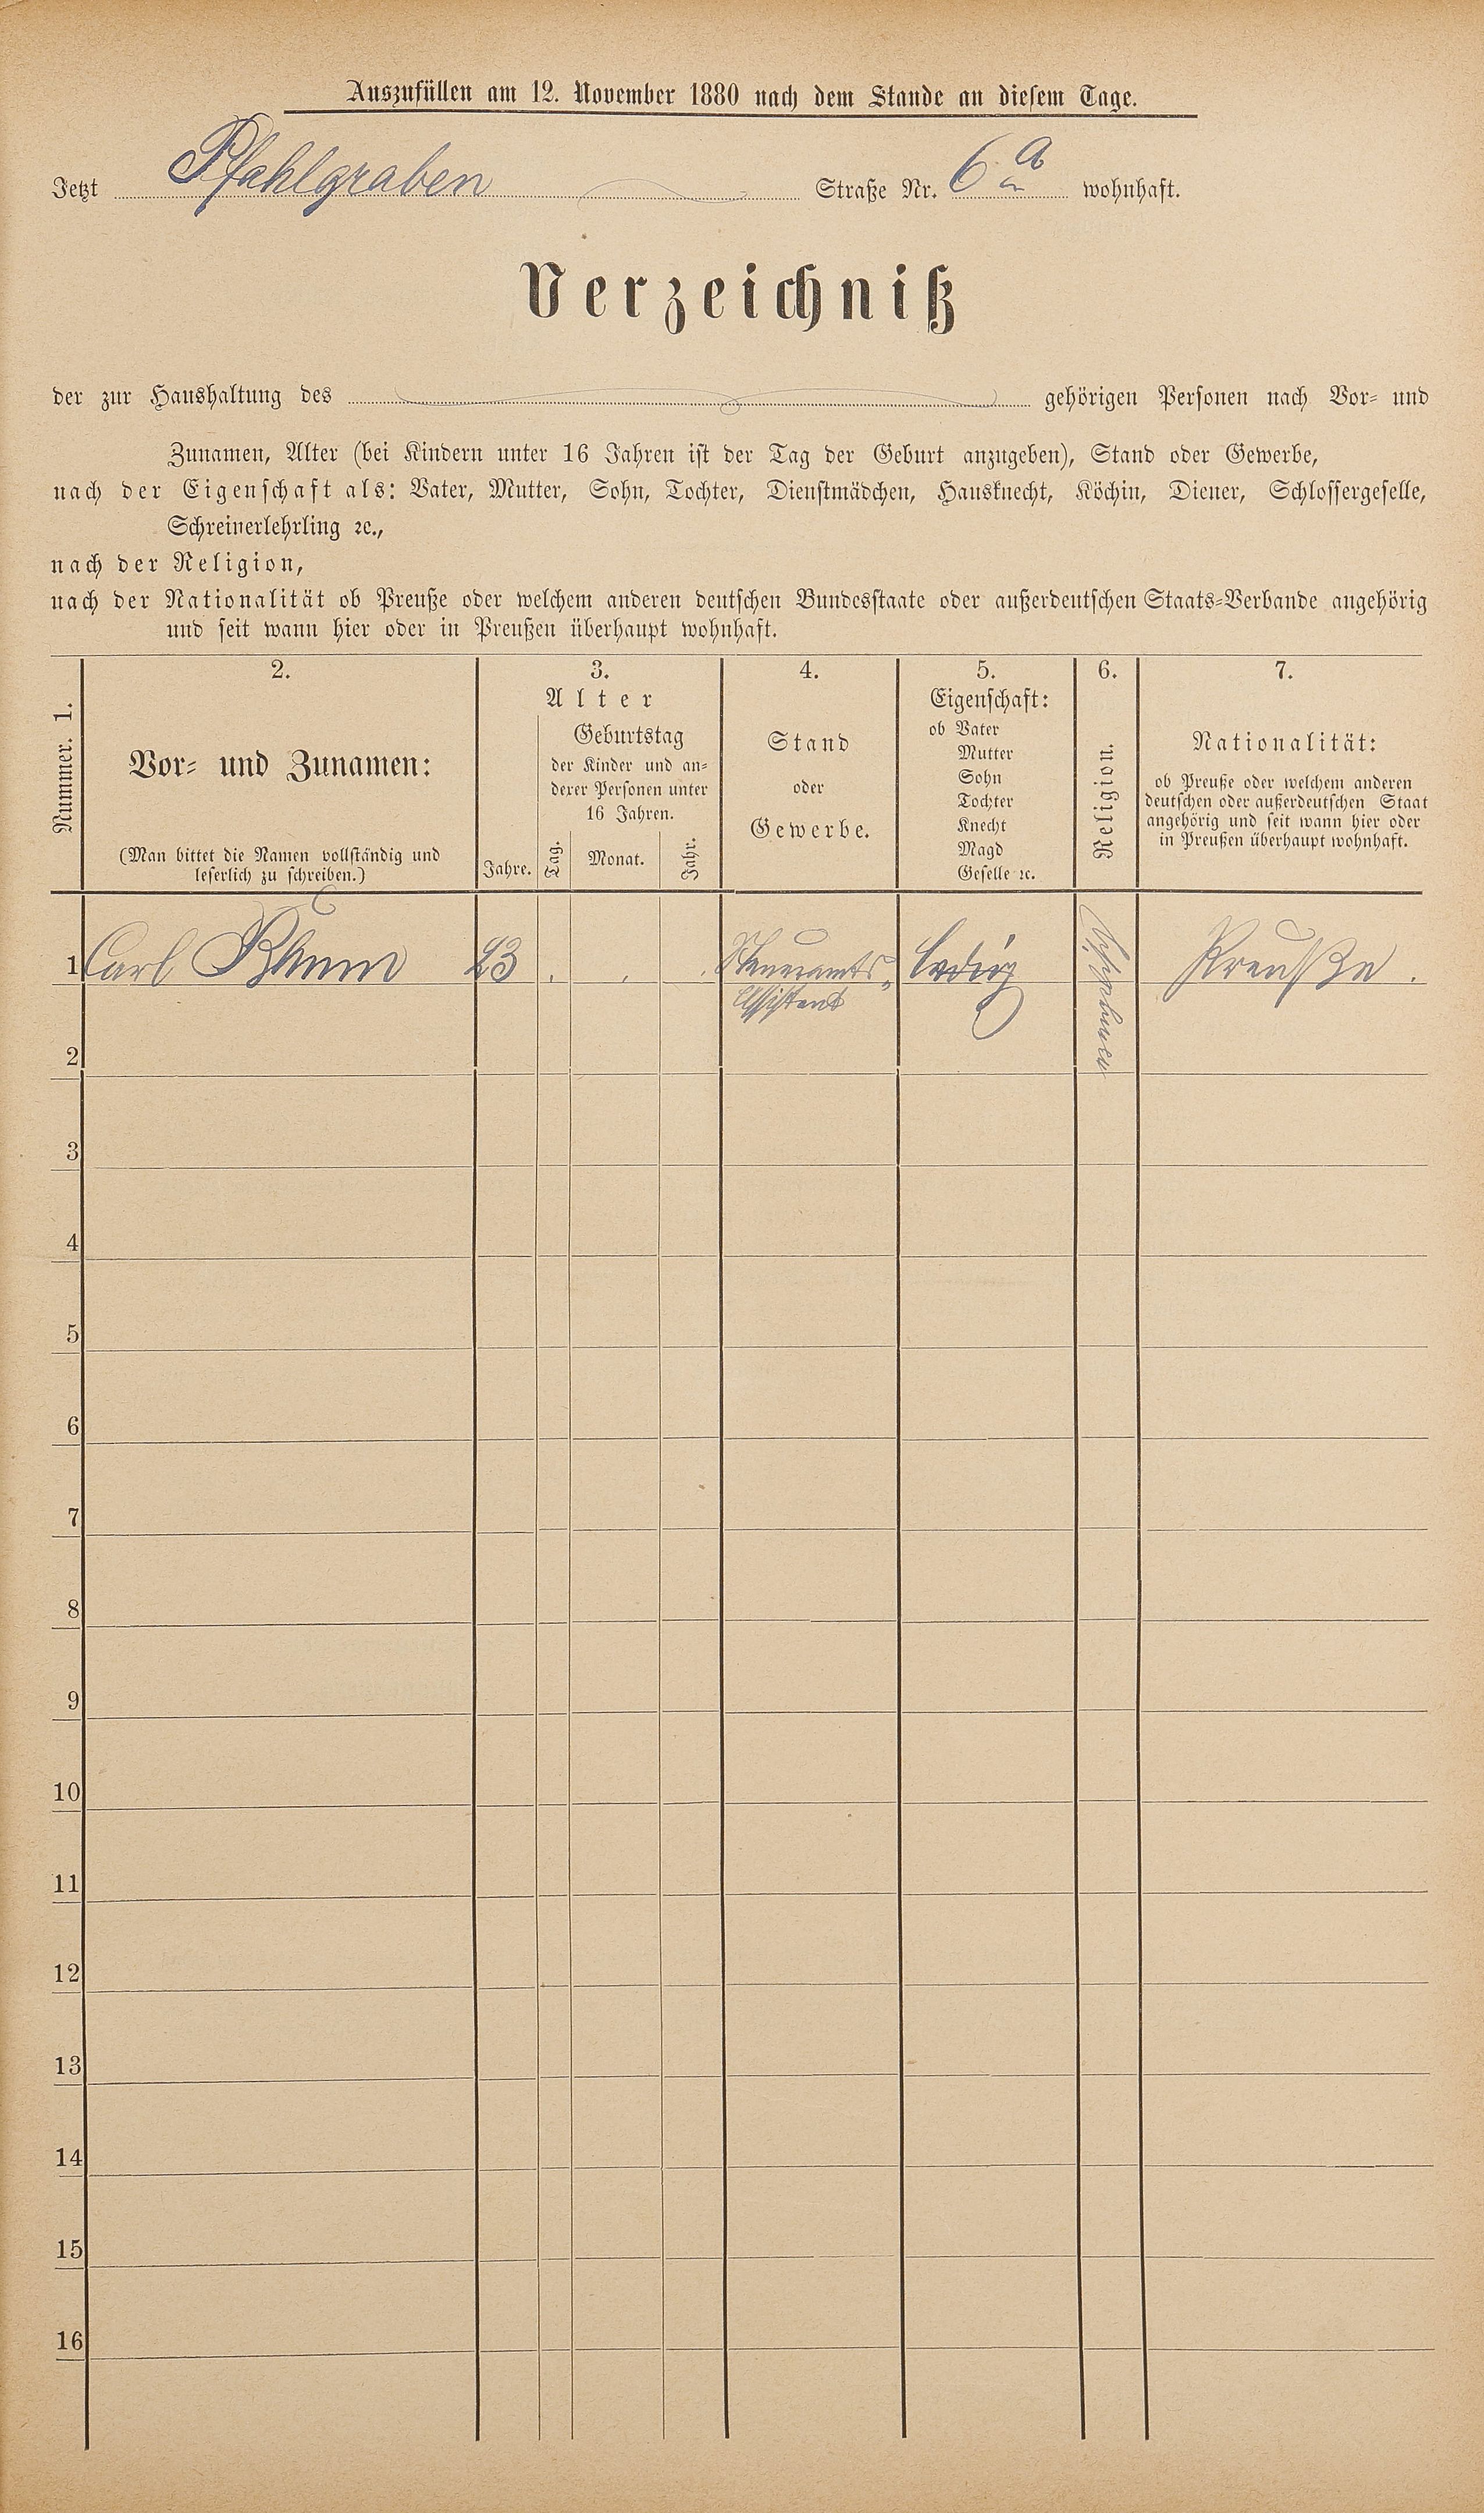 Auszufüllen am 12. November 1880 nach dem Stande an diesem Tage.
Jetzt Pfahlgraben Straße Nr. 6 a wohnhaft.
Verzeichniß
der zur Haushaltung des gehörigen Personen nach Vor- und
Zunamen, Alter (bei Kindern unter 16 Jahren ist der Tag der Geburt anzugeben), Stand oder Gewerbe,
nach der Eigenschaft als: Vater, Mutter, Sohn, Tochter, Dienstmädchen, Hausknecht, Köchin, Diener, Schlossergeselle,
Schreinerlehrling ꝛc.,
nach der Religion,
nach der Nationalität ob Preuße oder welchem anderen deutschen Bundesstaate oder außerdeutschen Staats-Verbande angehörig
und seit wann hier oder in Preußen überhaupt wohnhaft.
Nummer. 1.
2.
Vor- und Zunamen:
(Man bittet die Namen vollständig und
leserlich zu schreiben.)
3.
Alter
Jahre.
Geburtstag
der Kinder und an-
derer Personen unter
16 Jahren.
Tag.
Monat.
Jahr.
4.
Stand
oder
Gewerbe.
5.
Eigenschaft:
ob Vater
Mutter
Sohn
Tochter
Knecht
Magd
Geselle ꝛc.
6.
Religion.
7.
Nationalität:
ob Preuße oder welchem anderen
deutschen oder außerdeutschen Staat
angehörig und seit wann hier oder
in Preußen überhaupt wohnhaft.
1 Carl 23 . . . Steueramts- ledig Preuße.
Assistent
2
3
4
5
6
7
8
9
10
11
12
13
14
15
16